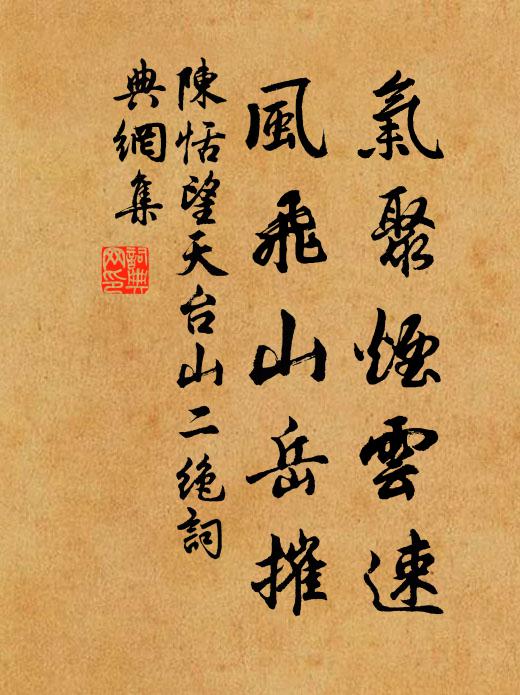 氣聚煙雲速
風飛山岳摧
陳恬望天台山二絶詞
典網集
詞典網印